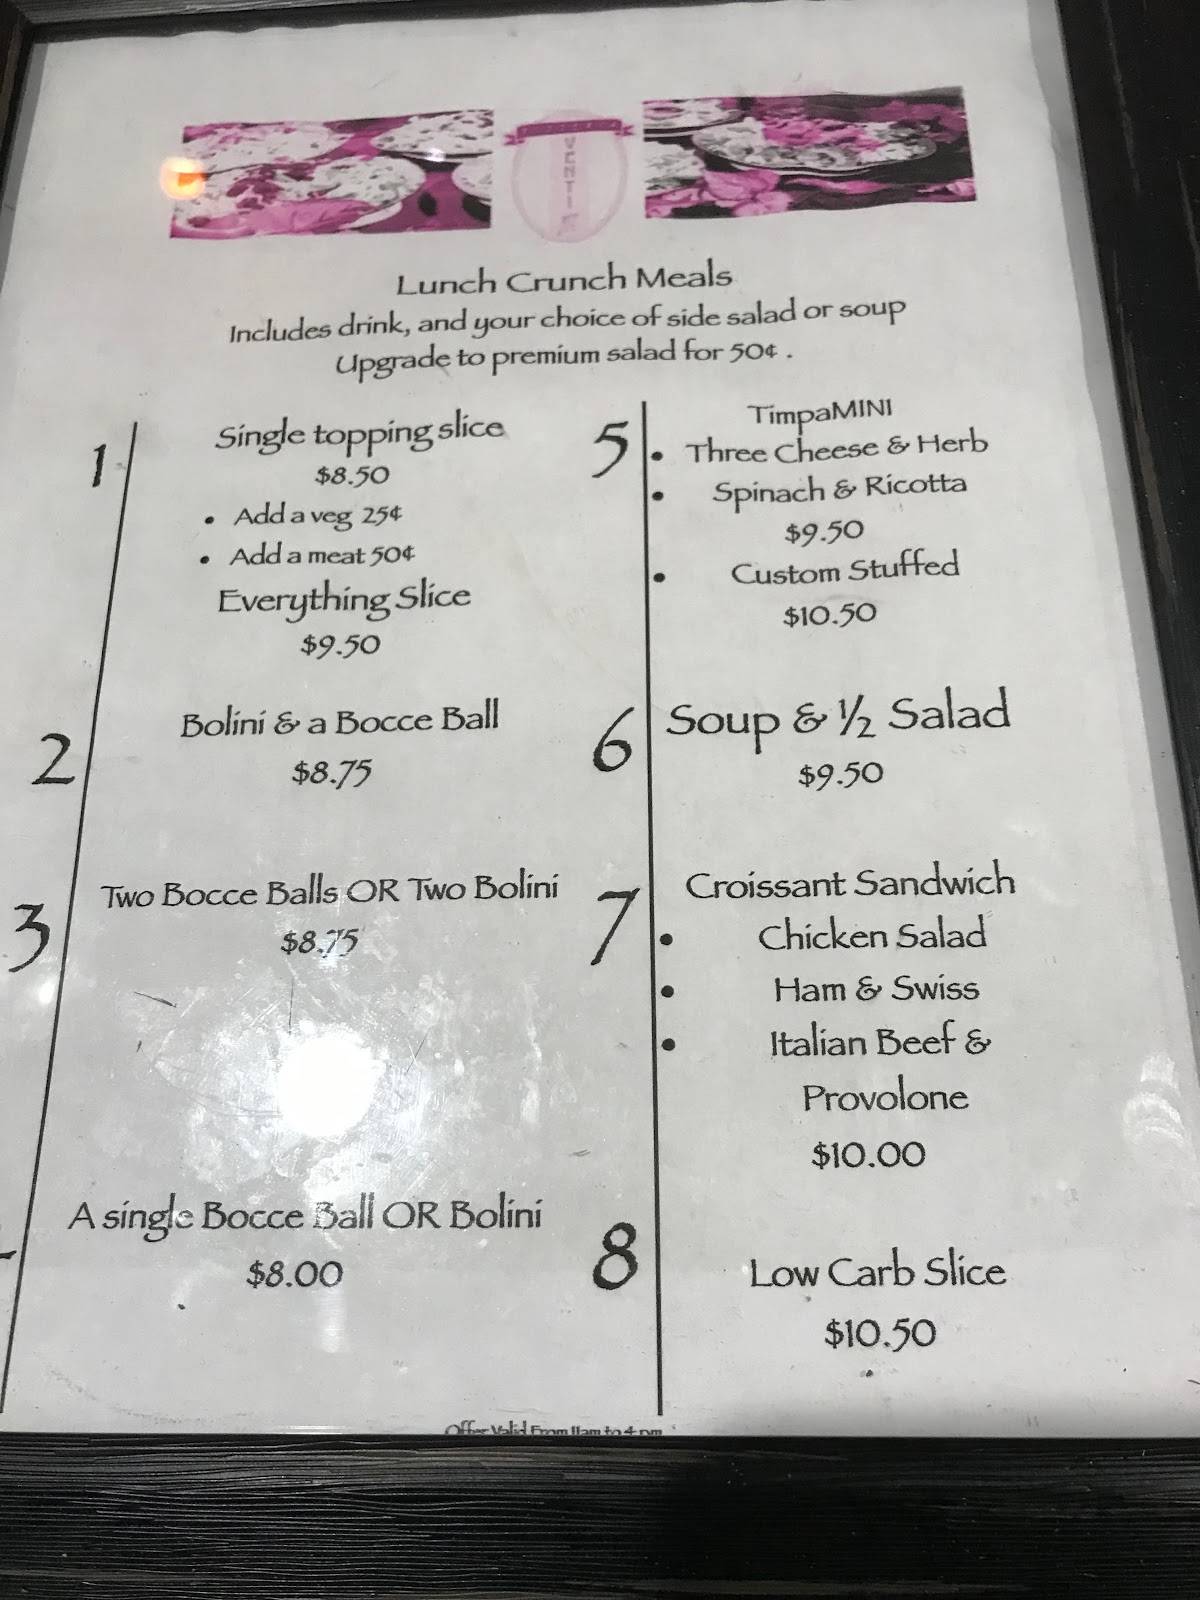 VENTI
Lunch Crunch Meals
Includes drink, and your choice of side salad or soup
Upgrade to premium salad for 50¢ .
1
Single topping slice
$8.50
• Add a veg 25¢
• Add a meat 50¢
Everything Slice
$9.50
2
Bolini & a Bocce Ball
$8.75
3
Two Bocce Balls OR Two Bolini
$8.75
A single Bocce Ball OR Bolini
$8.00
5
TimpaMINI
• Three Cheese & Herb
• Spinach & Ricotta
$9.50
• Custom Stuffed
$10.50
6
Soup & ½ Salad
$9.50
7
Croissant Sandwich
• Chicken Salad
• Ham & Swiss
• Italian Beef &
Provolone
$10.00
8
Low Carb Slice
$10.50
Offer Valid From 11am to 4 pm